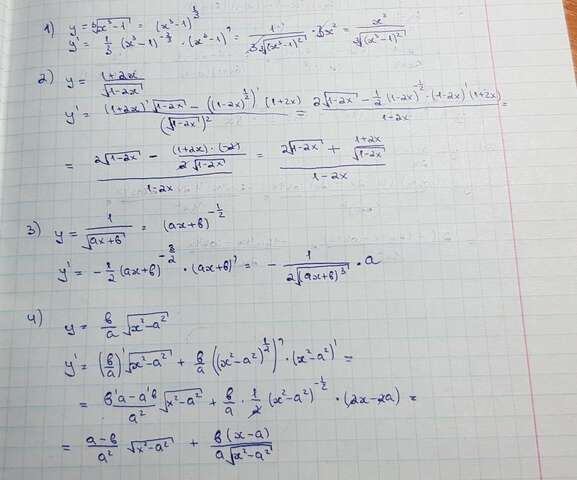 1) y = ∛(x³-1) = (x³-1)^(1/3)
y' = 1/3 (x³-1)^(-2/3) · (x³-1)' = 1·1/(3∛(x³-1)²) · 3x² = x²/∛(x³-1)²
2) y = (1+2x)/√(1-2x)
y' = ((1+2x)'√(1-2x) - ((1-2x)^(1/2))'(1+2x))/(√(1-2x))² = (2√(1-2x) - 1/2 (1-2x)^(-1/2) · (1-2x)'(1+2x))/(1-2x) =
= (2√(1-2x) - ((1+2x)·(-2))/(2√(1-2x)))/(1-2x) = (2√(1-2x) + (1+2x)/√(1-2x))/(1-2x)
3) y = 1/√(ax+b) = (ax+b)^(-1/2)
y' = -1/2 (ax+b)^(-3/2) · (ax+b)' = - 1/(2√(ax+b)³) · a
4) y = b/a √(x²-a²)
y' = (b/a)'√(x²-a²) + b/a ((x²-a²)^(1/2))' · (x²-a²)' =
= (b'a-a'b)/a² √(x²-a²) + b/a · 1/2 (x²-a²)^(-1/2) · (2x-2a) =
= (a-b)/a² √(x²-a²) + b(x-a)/(a√(x²-a²))